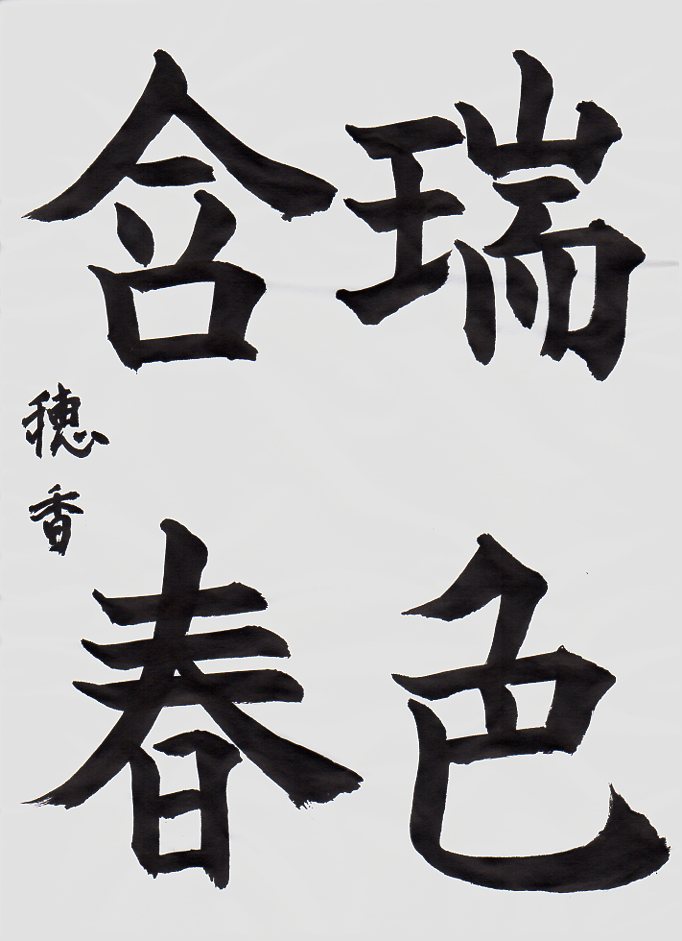 瑞色
含春
穂香